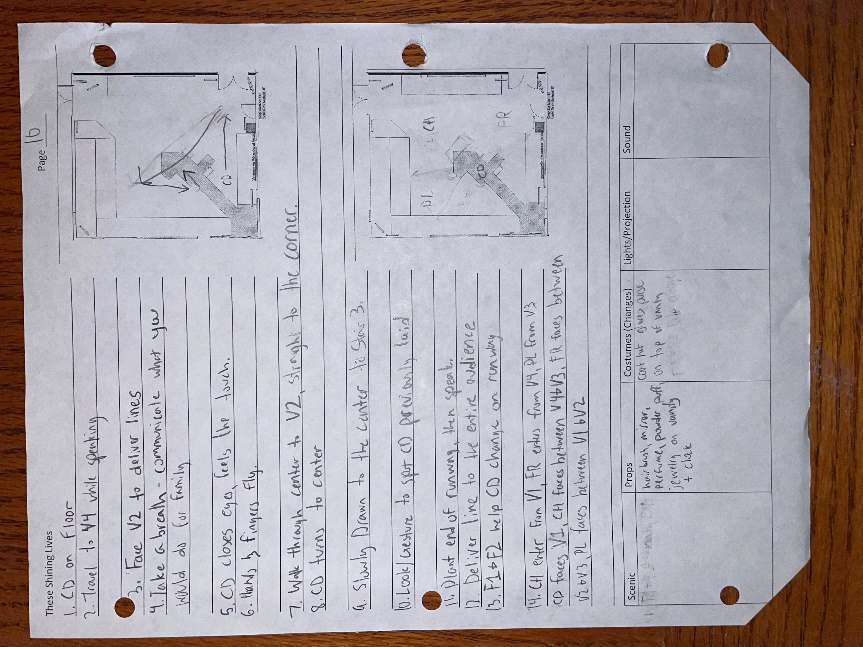 These Shining Lives
Page 16
1. CD on Floor
2. Travel to V4 while speaking
3. Face V2 to deliver lines
4. Take a breath - communicate what you
would do for family
5. CD closes eyes, feels the touch.
6. Hands & fingers fly.
7. Walk through center to V2, straight to the corner.
8. CD turns to center
9. Slowly Drawn to the center to
10. Look/Gesture to spot CD previously laid
11. Plant end of runway, then speak.
12. Deliver line to the entire audience
13. F1 & F2 help CD change on runway
14. CH enter from V1, FR enters from V4, PL from V3
CD faces V1, CH faces between V4 & V3, FR faces between
V2 & V3, PL faces between V1 & V2
CD
CH
FR
PL
CD
Scenic
Props
Costumes (Changes)
Lights/Projection
Sound
hairbrush, mirror,
perfume, powder puff,
jewelry on vanity
coat hat gloves purse
on top of vanity